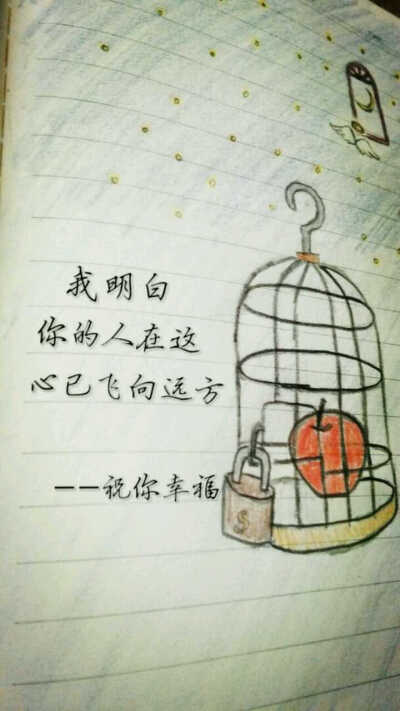 我明白
你的人在这
心已飞向远方
——祝你幸福
$